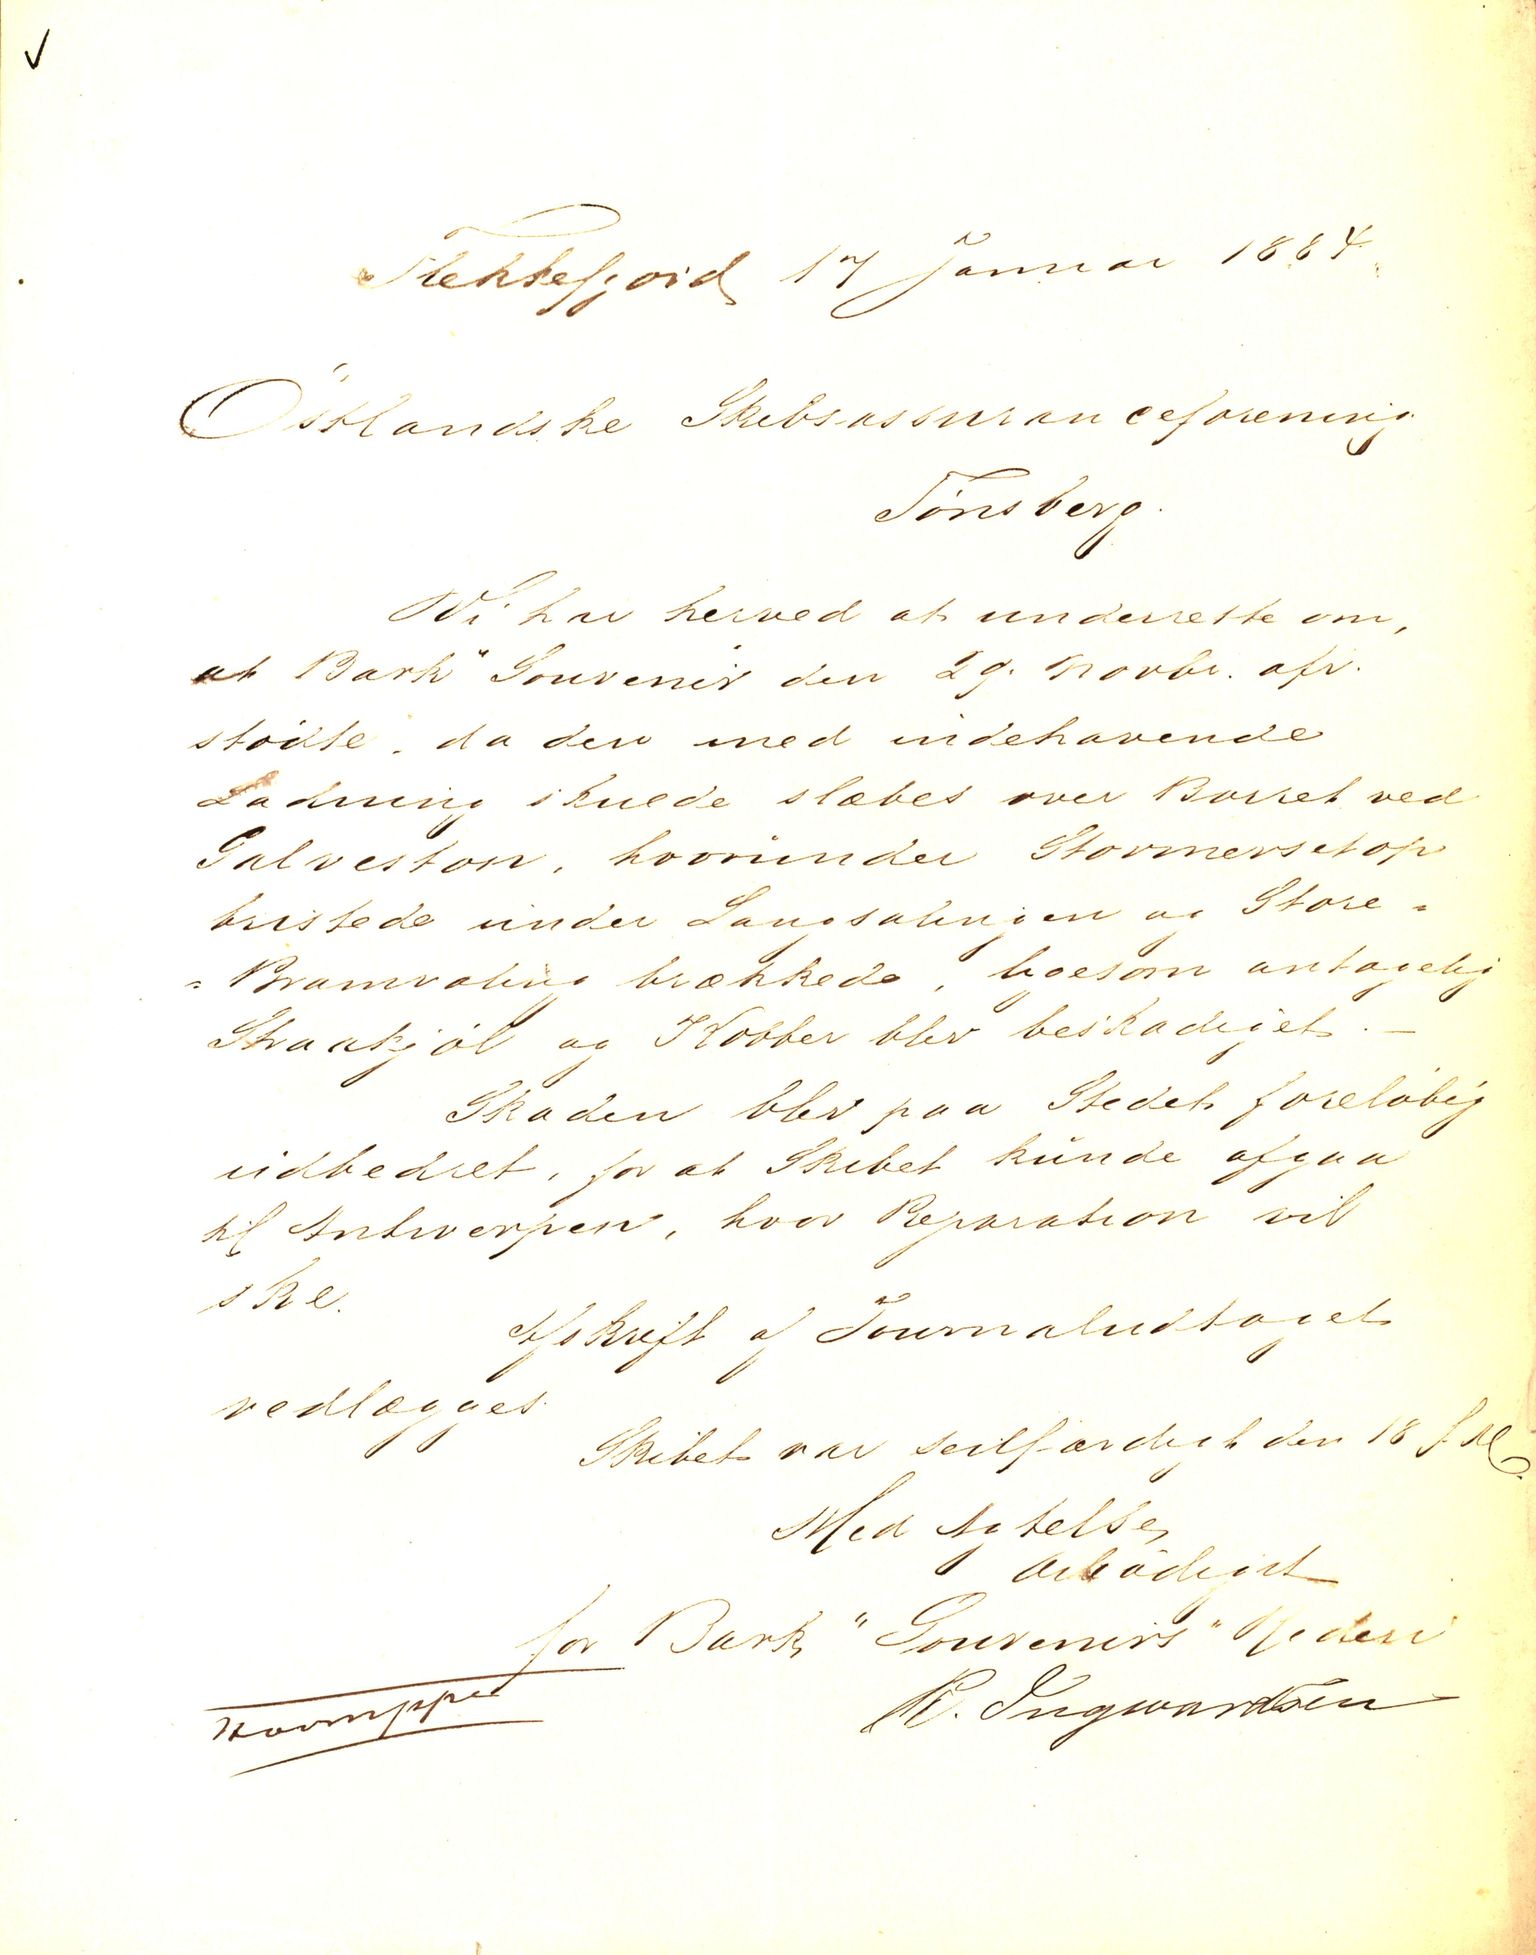 Flekkefjord 17 Januar 1884
Östlandske Skibsassuranceforening
Tönsberg.
Vi har herved at underrette om,
at Bark "Souvenir den 29. Novbr. afv.
stödte, da den med indehavende
Ladning skulde slæbes over Barret ved
Galveston, hvorunder Stormersetop
bristede under Langsalingen og Store-
-Bramraling brækkede, ligesom antagelig
Straakjöl og Kobber blev beskadiget. —
Skaden blev paa Stedet foreløbig
udbedret, for at Skibet kunde afgaa
til Antwerpen, hvor Reparation vil
ske.
Afskrift af Journaludtoget
vedlægges.
Skibet var seilfærdigt den 18 f. M.
Med Agtelse,
Ærbödigst
for Bark "Souvenirs" Rederi
R. Ingwardsen